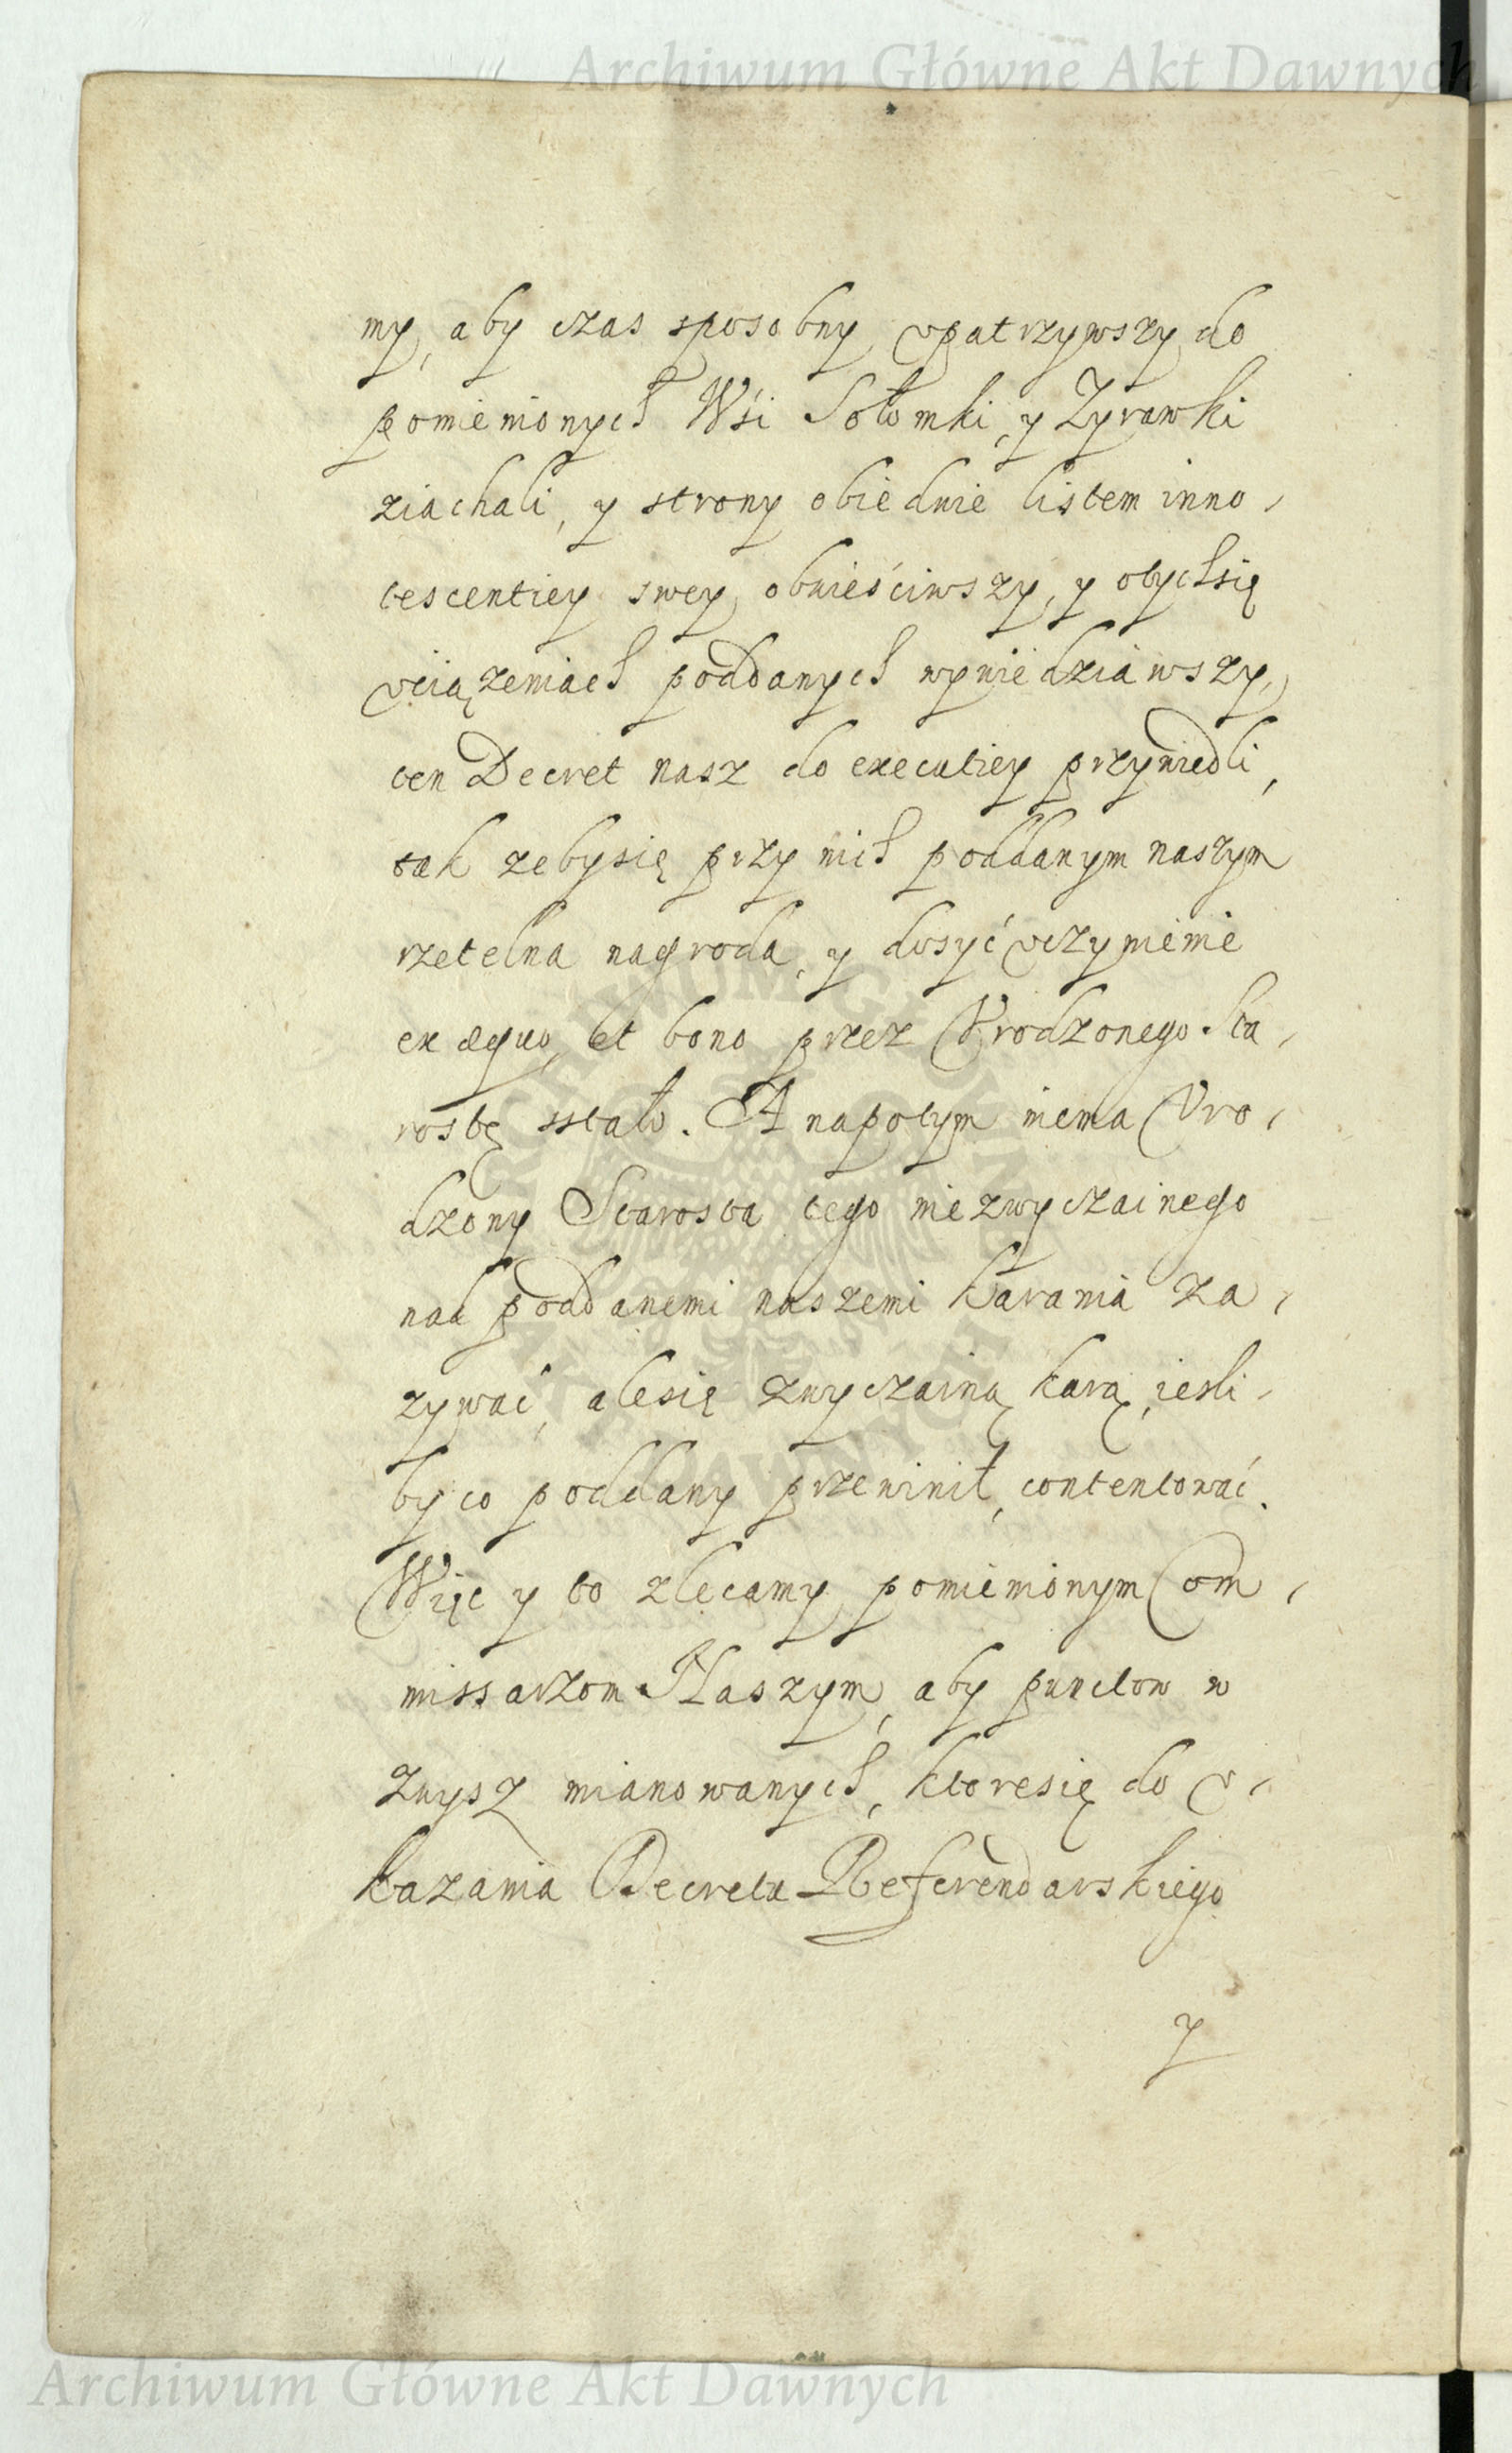 Archiwum Główne Akt Dawnych
my, aby czas sposobny vpatrzywszy do
pomienionych Wśi Sołomki, y Zyrawki
ziachali, y strony obiedwie listem inno-
tescentiey swey obwieściwszy, y otychsię
vciążeniach poddanych wywiedziawszy,
ten Decret nasz do executiey przywiedli,
tak zebysię przy nich poddanym naszym
rzetelna nagroda, y dosyć vczynienie
ex æquo et bono przez Vrodzonego Sta-
rostę sstało. A napotym niema Vro-
dzony Starosta tego niezwyczainego
nad poddanemi naszemi karania za-
zywać, alesię zwyczainą karą, iesli-
by co poddany przewinił, contentować.
Więc y to zlecamy pomienionym Com-
missarzom Naszym, aby punctow w
zwysz mianowanych, ktoresię do v-
kazania Decretu Referendarskiego
y
ARCHIWUM GŁÓWNE
AKT DAWNYCH
Archiwum Główne Akt Dawnych